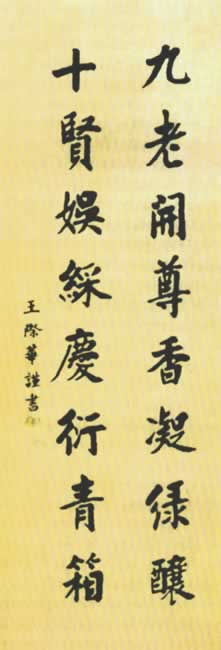 九老開尊香凝绿釀
十賢娛綵慶衍青箱
王際華謹書